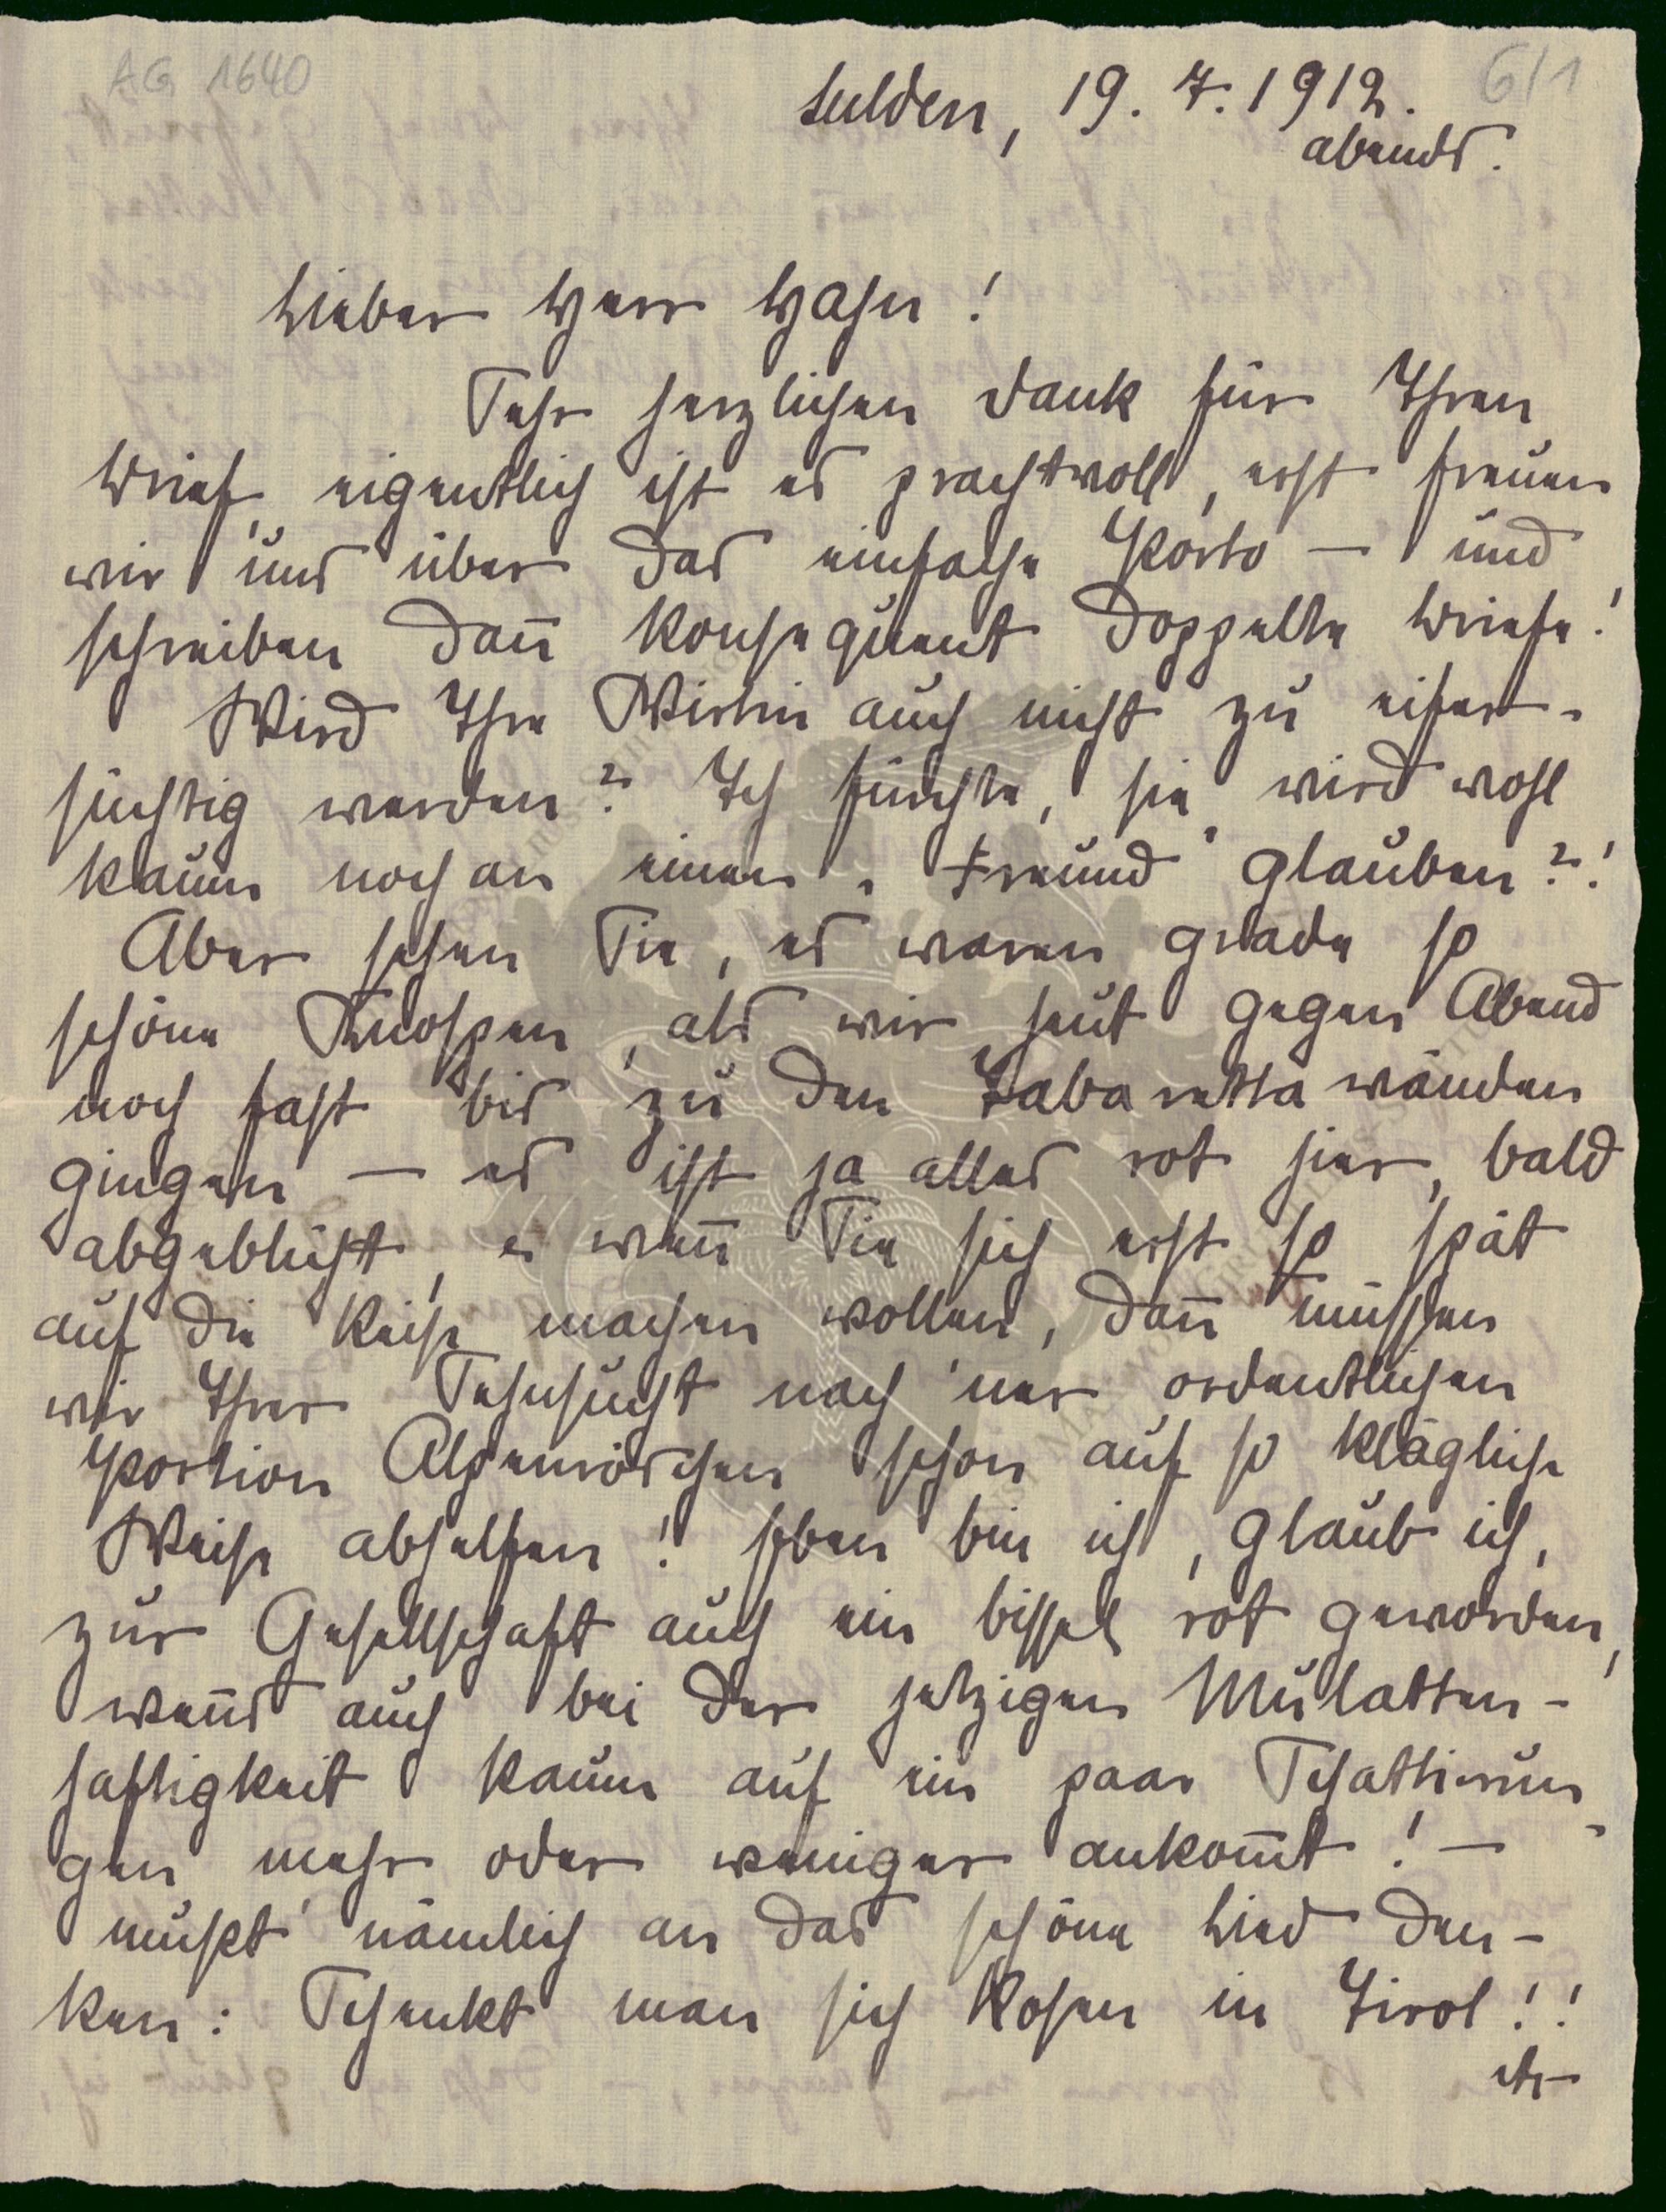 AG 1640
6/1
Sulden, 19. 7. 1912.
abends.
Lieber Herr Hahn!
Sehr herzlichen Dank für Ihren
Brief, eigentlich ist es prachtvoll, erst freuen
wir uns über das einfache Porto — und
schreiben dan̄ konsequent doppelte Briefe!
Wird Ihre Wirtin auch nicht zu eifer-
süchtig werden? Ich fürchte, sie wird wohl
kaum noch an einen „Freund“ glauben?!
Aber sehen Sie, es waren grade so
schöne Knospen, als wir heut gegen Abend
noch fast bis zu den Tabarettawänden
gingen — es ist ja alles rot hier, bald
abgeblüht, u wen̄ Sie sich erst so spät
auf die Reise machen wollen, dan̄ müssen
wir Ihrer Sehnsucht nach 'ner ordentlichen
Portion Alpenröschen schon auf so klägliche
Weise abhelfen! Eben bin ich, glaub ich,
zur Gesellschaft auch ein bissel rot geworden,
wen̄s auch bei der jetzigen Mulatten-
haftigkeit kaum auf ein paar Schattierun-
gen mehr oder weniger ankom̄t! —
mußt' nämlich an das schöne Lied den-
ken: Schenkt man sich Rosen in Tirol!!